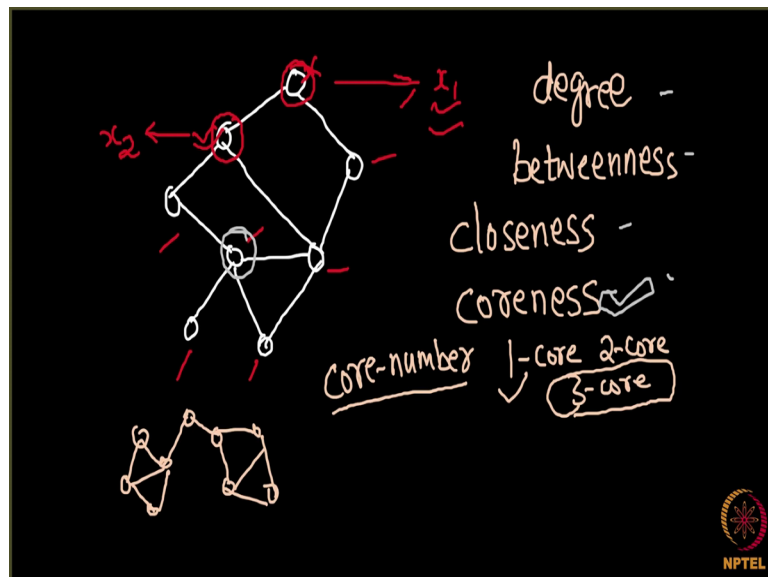 degree -
x₁
x₂
betweenness -
closeness -
coreness
core-number 1-core 2-core
3-core
NPTEL